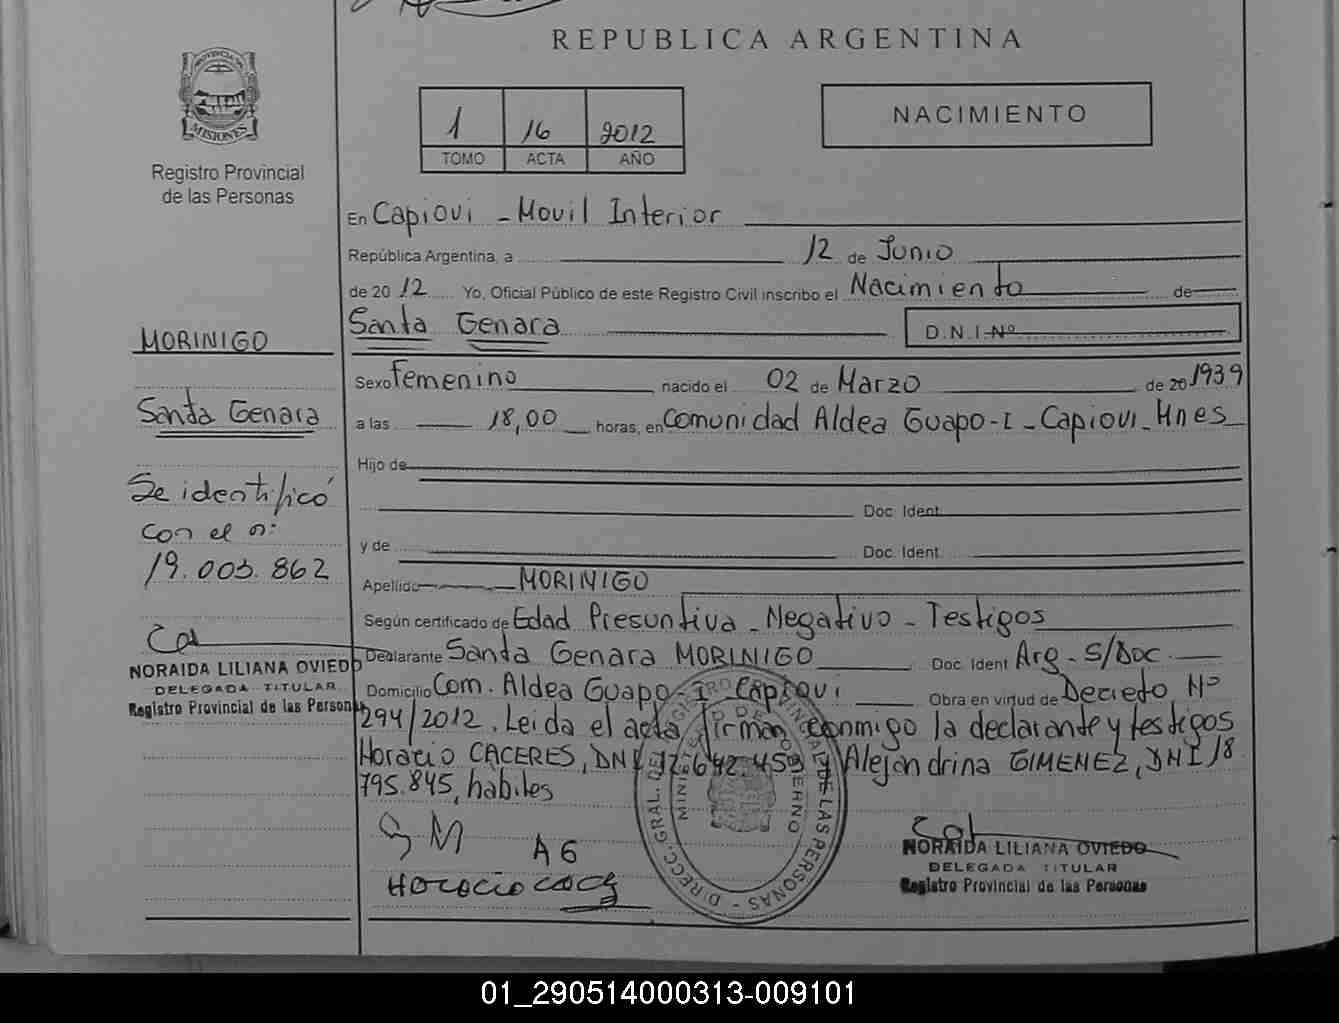 REPUBLICA ARGENTINA
PROVINCIA DE
MISIONES
Registro Provincial
de las Personas
1 16 2012
TOMO ACTA AÑO
NACIMIENTO
En Capiovi - Movil Interior
República Argentina, a 12 de Junio
de 20 12 Yo, Oficial Público de este Registro Civil inscribo el Nacimiento de
Santa Genara D.N.I.Nº
MORINIGO
Santa Genara
Se identificó
con el n:
19.003.862
NORAIDA LILIANA OVIEDO
DELEGADA TITULAR
Registro Provincial de las Personas
Sexo Femenino nacido el 02 de Marzo de 20 1939
a las 18,00 horas, en Comunidad Aldea Guapo-I - Capiovi - Mnes
Hijo de
Doc. Ident.
y de Doc. Ident.
Apellido MORINIGO
Según certificado de Edad Presuntiva - Negativo - Testigos
Declarante Santa Genara MORINIGO Doc. Ident Arg - S/Doc
Domicilio Com. Aldea Guapo-I - Capiovi Obra en virtud de Decreto Nº
294/2012. Leida el acta, firman conmigo la declarante y testigos
Horacio CACERES, DNI 12.642.459 y Alejandrina GIMENEZ, DNI 18
795.845, habiles
G M A G
Horacio
DIRECC. GRAL. DEL REGISTRO PROVINCIAL DE LAS PERSONAS
MINISTERIO DE GOBIERNO
NORAIDA LILIANA OVIEDO
DELEGADA TITULAR
Registro Provincial de las Personas
01_290514000313-009101